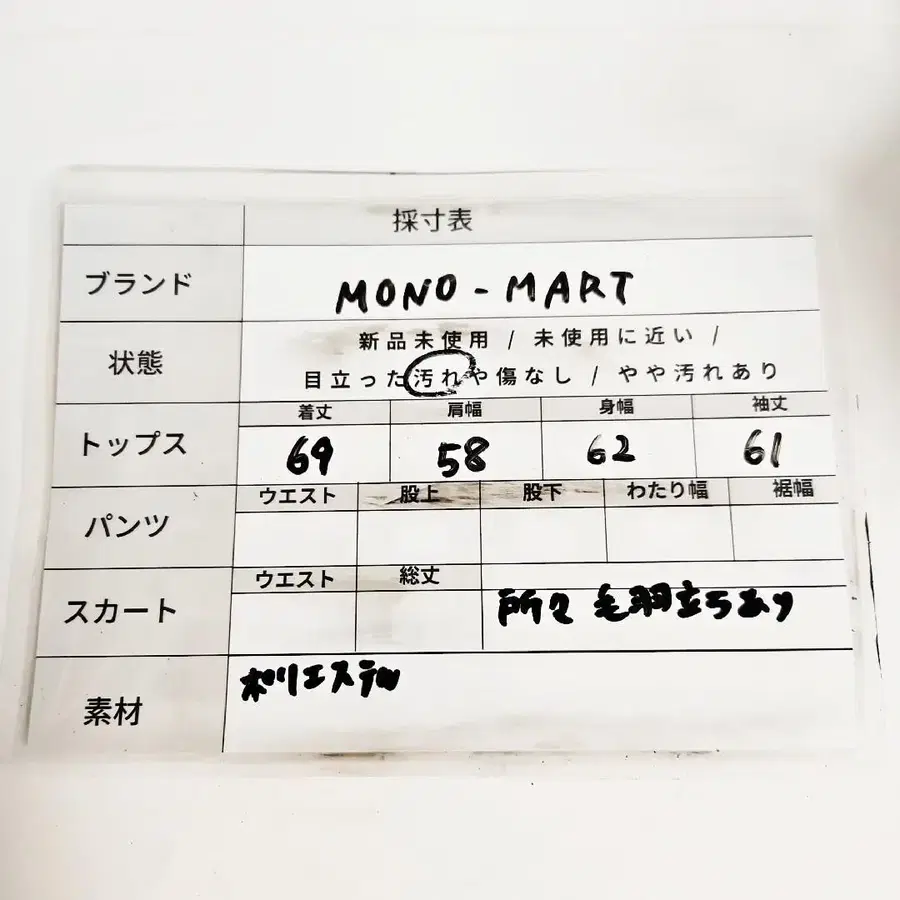 採寸表
ブランド
MONO-MART
状態
新品未使用 / 未使用に近い /
目立った汚れや傷なし / やや汚れあり
トップス
着丈 肩幅 身幅 袖丈
69 58 62 61
パンツ
ウエスト 股上 股下 わたり幅 裾幅
スカート
ウエスト 総丈
所々 毛羽立ちあり
素材
ポリエステル